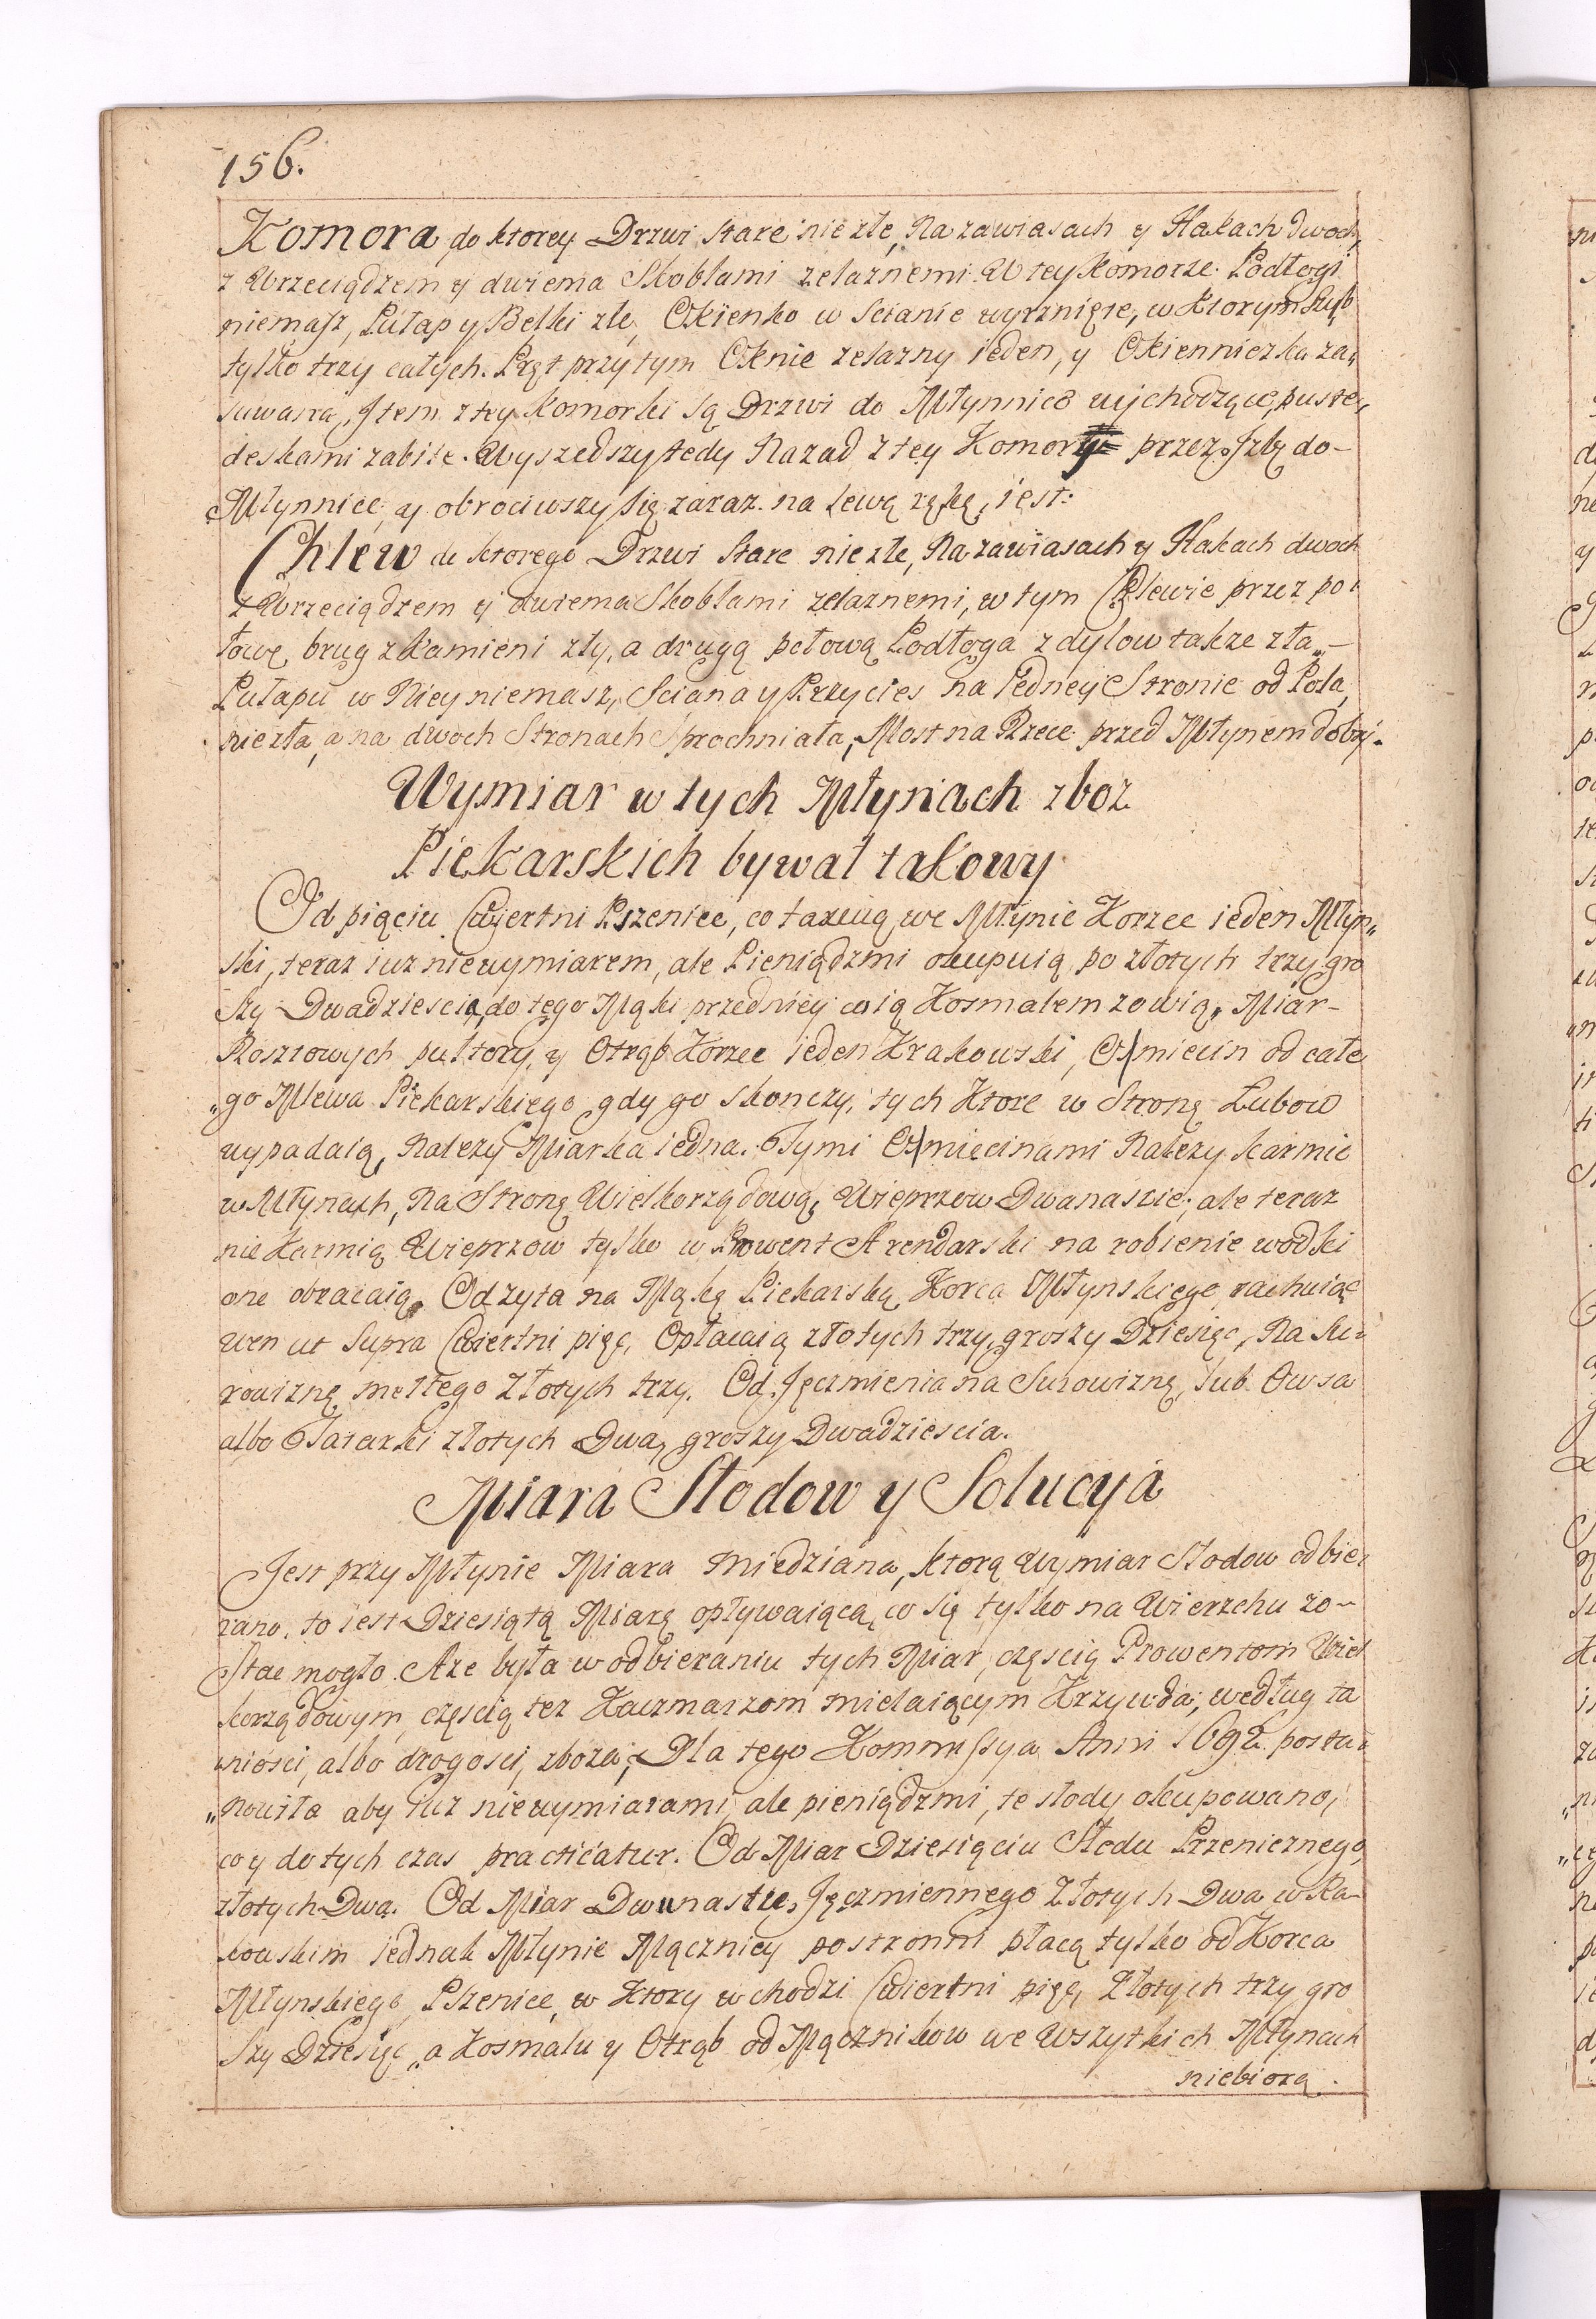 156.
Komora do ktorey Drzwi stare nie złe, Na zawiasach y Hakach dwoch,
z Wrzeciądzem y dwiema Skoblami zelaznemi. W tey komorze Podłogi
niemasz, Pułap y Belki złe, Okienko w Scianie wyrznięte, w ktorym szyb
tylko trzy całych. Pręt przytym Oknie zelazny ieden, y Okienniczka za„
suwana, Item z tey komorki są Drzwi do Młynnice wychodzące, puste,
deskami zabite. Wyszedszy tedy Nazad z tey Komory przez Izbę do-
Młynnice, y obrociwszy się zaraz na lewą rękę, iest:
Chlew do ktorego Drzwi stare nie złe, Na zawiasach y Hakach dwoch
z Wrzeciądzem y dwiema Skoblami zelaznemi, w tym Chlewie przez po„
łowę brug z kamieni zły, a drugą połową Podłoga z dylow także zła„-
Pułapu w Niey niemasz, Sciana y Przycies na Jedney Stronie od Pola,
niezła, a na dwoch Stronach Sprochniała, Most na Rzece przed Młynem dobry.
Wymiar w tych Młynach zboz
Piekarskich bywał takowy
Od pięciu Cwiertni Pszenice, co taxuią we Młynie Korzec ieden Młyn„
ski, teraz iuz niewymiarem, ale Pieniądzmi okupuią po złotych trzy gro
szy Dwadziescia, do tego Mąki przedniey co ią Kosmalem zowią, Miar-
Rosztowych pułtory, y Otrąb Korzec ieden Krakowski, Osmiecin od całe
„go Mlewa Piekarskiego gdy go skonczy, tych ktore w Stronę Łubow
wypadaią, Należy Miarka iedna. Tymi Osmiecinami Należy karmic
w Młynach, Na Stronę Wielkorządową, Wieprzow Dwanascie, ale teraz
nie karmią Wieprzow tylko w Prowent Arendarski na robienie wodki
one obracaią. Od zyta na Mąkę Piekarską Korca Młynskiego rachuiąc
wen ut Supra Cwiertni pięc, Opłacaią złotych trzy, groszy Dziesięc, Na su„
rowiznę mełtego złotych trzy. Od Jęczmienia na Surowiznę, lub Owsa
albo Tatarki złotych Dwa, groszy Dwadziescia.
Miara Słodow y Solucya
Jest przy Młynie Miara Miedziana, ktorą Wymiar Słodow odbie„
rano, to iest Dziesiątą Miarę opływaiącą, co się tylko na Wierzchu zo-
stac mogło. A ze była w odbieraniu tych Miar, częscią Prowentom Wiel
korządowym, częscią tez Kaczmarzom mielaiącym Krzywda, według ta
niosci, albo drogosci, zboza, Dla tego Kommissya Anni 1692. posta„
„nowiła aby iuz niewymiarami, ale pieniądzmi, te słody okupowano,
co y do tych czas practicatur. Od Miar Dziesięciu Słodu Pszenicznego,
złotych Dwa. Od Miar Dwunastu, Jęczmiennego Złotych Dwa w Ra-
kowskim iednak Młynie Mącznicy postronni płacą tylko od Korca
Młynskiego, Pszenice, w ktory wchodzi Cwiertni pięc, Złotych trzy gro
szy Dziesięc, a Kosmalu y Otrąb od Mącznikow we Wszytkich Młynach
niebiorą.